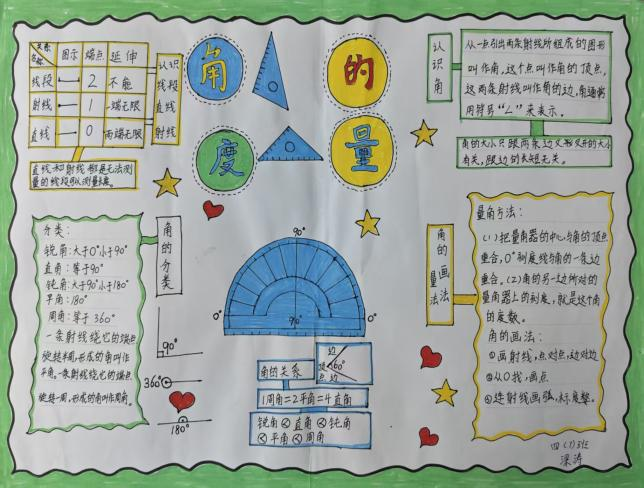 角的
度量
关系
名称
图示 端点 延伸
线段 2 不能
射线 1 一端无限
直线 0 两端无限
认识
线段
直线
射线
直线和射线都是无法测
量的线段可以测量长度。
认识角
从一点引出两条射线所组成的图形
叫作角,这个点叫作角的顶点,
这两条射线叫作角的边,角通常
用符号“∠”来表示。
角的大小只跟两条边叉开的大小
有关,跟边的长短无关。
分类:
锐角:大于0°小于90°
直角:等于90°
钝角:大于90°小于180°
平角:180°
周角:等于360°
一条射线绕它的端点
旋转半周,形成的角叫作
平角。一条射线绕它的端点
旋转一周,形成的角叫作周角。
角的分类
90°
360°
180°
90°
0°
0°
角的关系
边
顶点
边
1周角=2平角=4直角
锐角<直角<钝角
<平角<周角
角的量法
画法
量角方法:
(1)把量角器的中心与角的顶点
重合,0°刻度线与角的一条边
重合。(2)角的另一边所对的
量角器上的刻度,就是这个角
的度数。
角的画法:
①画射线,点对点,边对边
②从0找,画点
③连射线画弧,标度数。
四(7)班
梁涛